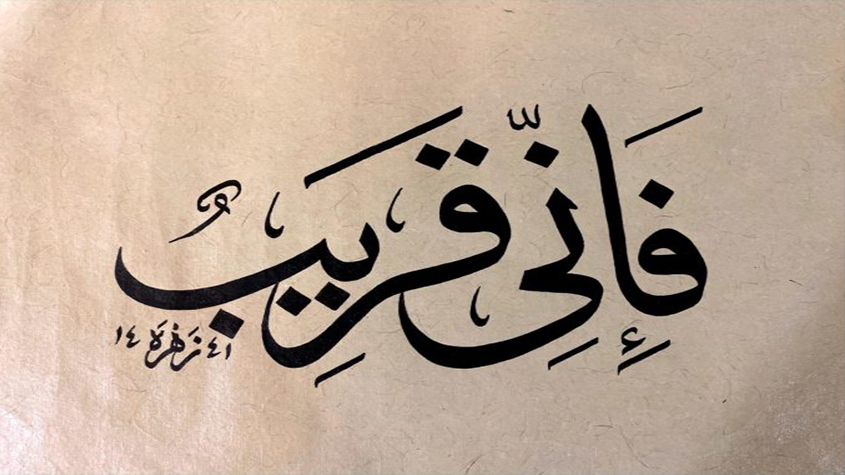 فَإِنِّى قَرِيبٌ
زَهْرَه ١٤٤١